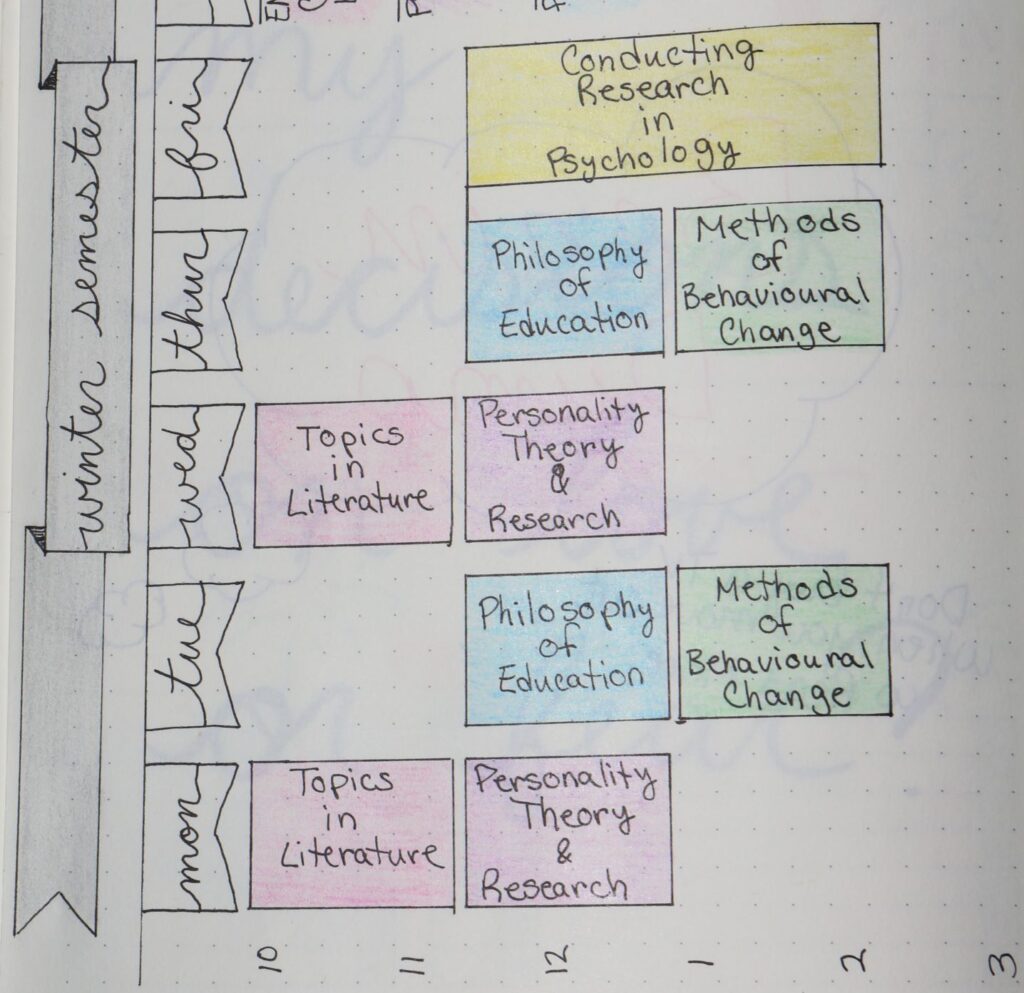 winter semester
fri
Conducting
Research
in
Psychology
thur
Philosophy
of
Education
Methods
of
Behavioural
Change
wed
Topics
in
Literature
Personality
Theory
&
Research
tue
Philosophy
of
Education
Methods
of
Behavioural
Change
mon
Topics
in
Literature
Personality
Theory
&
Research
10
11
12
1
2
3